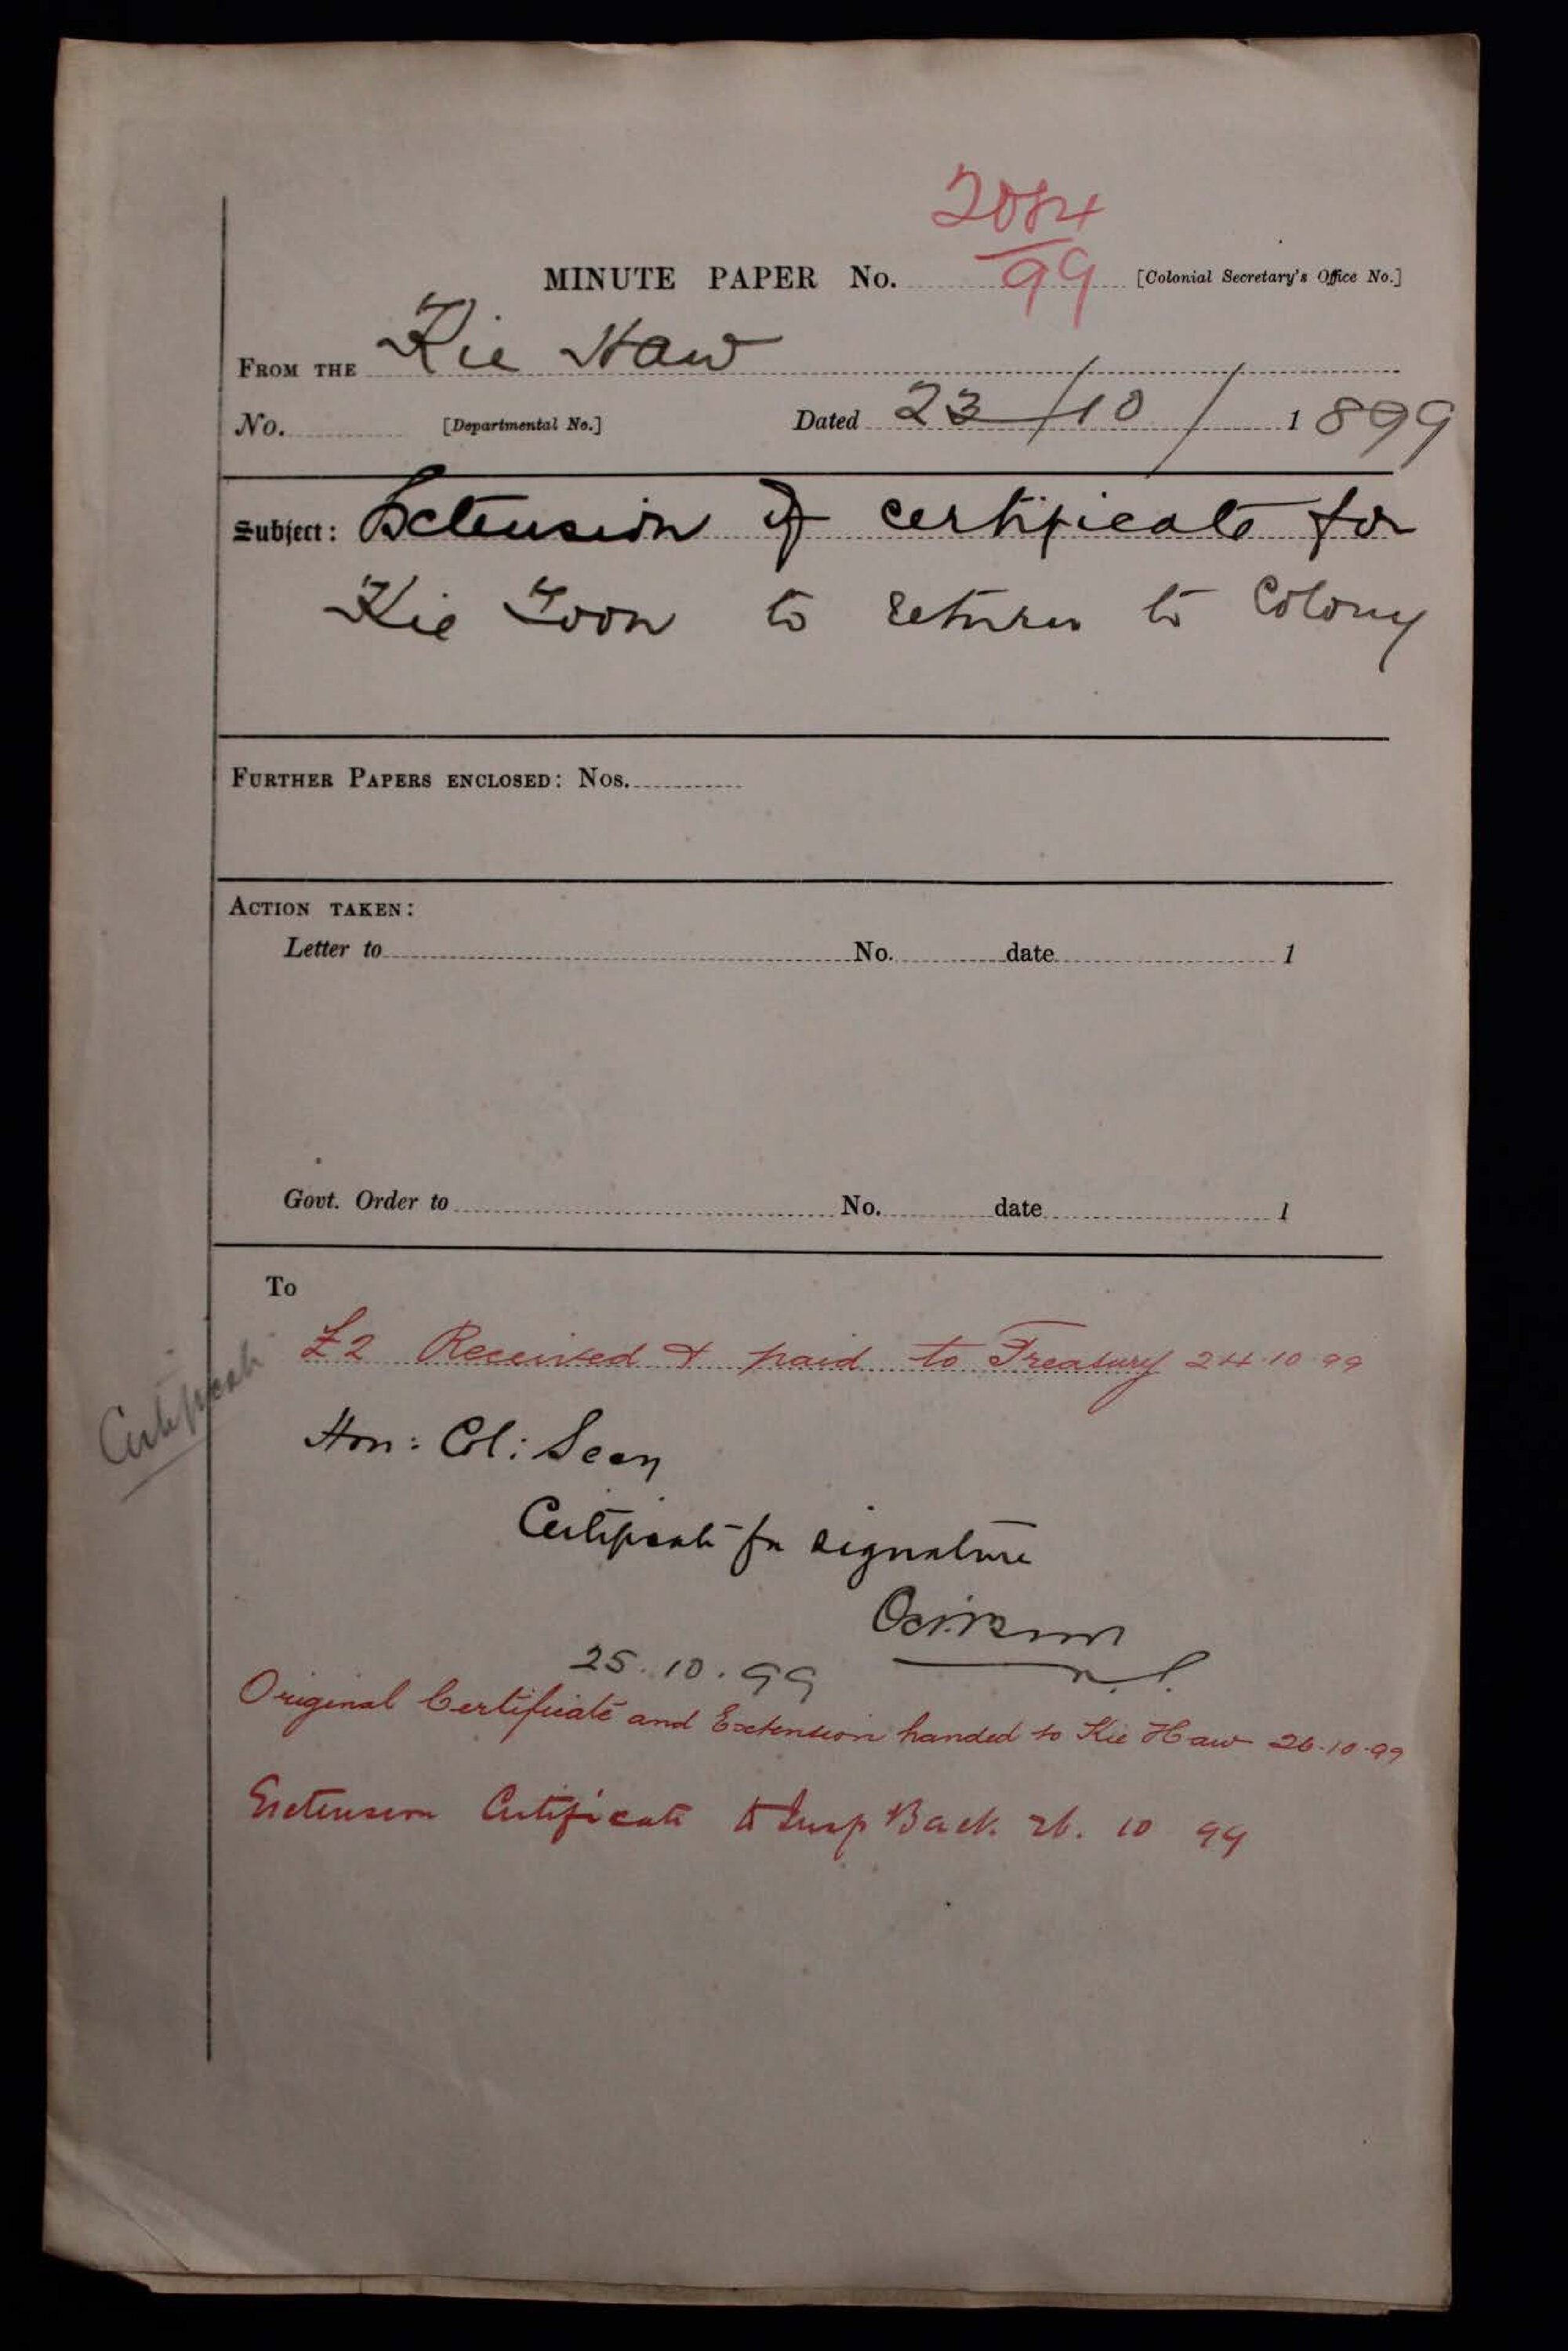 2084
99
MINUTE PAPER No. [Colonial Secretary's Office No.]
FROM THE Kie Haw
No. [Departmental No.] Dated 23/10/1899
Subject: Extension of certificate for
Kie Yoon to return to Colony
FURTHER PAPERS ENCLOSED: Nos.
ACTION TAKEN:
Letter to No. date 1
Govt. Order to No. date 1
To
£2 Received & paid to Treasury 24.10.99
Certificate
Hon: Col: Secy
Certificate for signature
25.10.99
Original Certificate and Extension handed to Kie Haw 26.10.99
Extension Certificate to Insp Back 26. 10 99